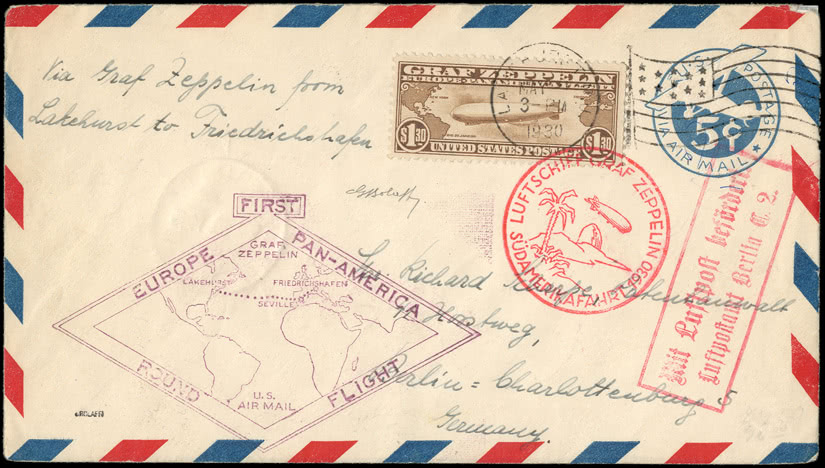 Via Graf Zeppelin from
Lakehurst to Friedrichshafen
GRAF ZEPPELIN
$1.30
$1.30
UNITED STATES POSTAGE
MAY
3-PM
1930
POSTAGE
5¢
VIA AIR MAIL
GBolaffi
FIRST
EUROPE PAN-AMERICA
ROUND FLIGHT
GRAF
ZEPPELIN
LAKEHURST
FRIEDRICHSHAFEN
SEVILLE
U.S.
AIR MAIL
LUFTSCHIFF GRAF ZEPPELIN
SÜDAMERIKAFAHRT 1930
Mit Luftpost befördert
Luftpostamt Berlin C. 2.
Richard
Patentanwalt
Berlin = Charlottenburg 5
Germany.
GBOLAFFI